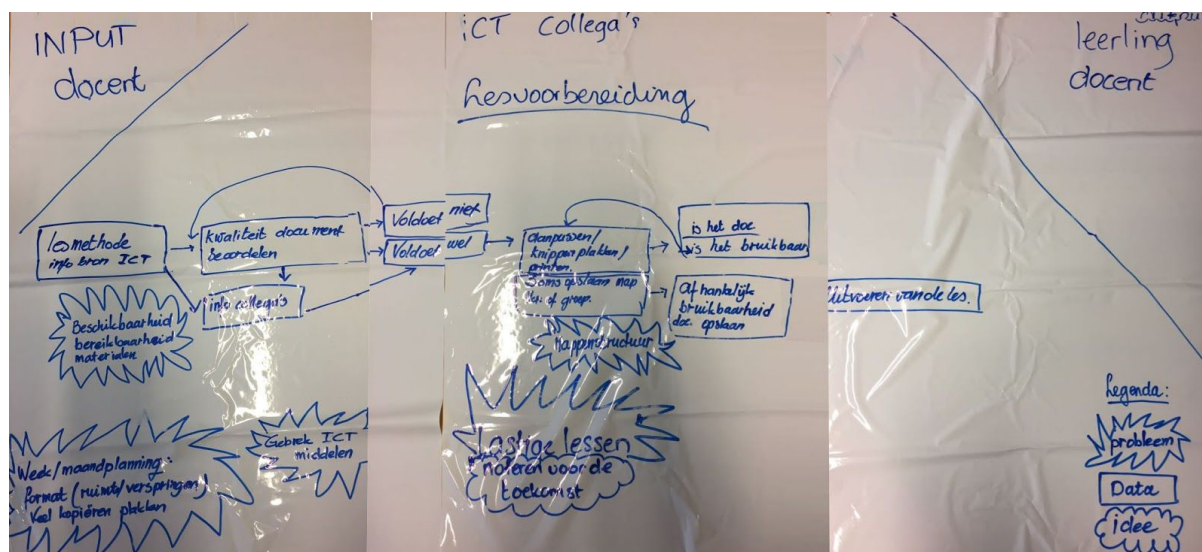 INPUT
docent
iCT Collega's
Lesvoorbereiding
leerling
docent
lesmethode
info bron ICT
kwaliteit document
beoordelen
info collega's
Voldoet niet
Voldoet wel
aanpassen/
knippen plakken/
printen.
Soms opslaan map
of groep.
is het doc
is het bruikbaar
Afhankelijk
bruikbaarheid
doc. opslaan
Uitvoeren van de les.
Beschikbaarheid
bereikbaarheid
materialen
Mappenstructuur
Week/maandplanning:
format (ruimte/verspringen)
Veel kopiëren plakken
Gebrek ICT
middelen
Lastige lessen
noteren voor de
toekomst
Legenda:
probleem
Data
idee